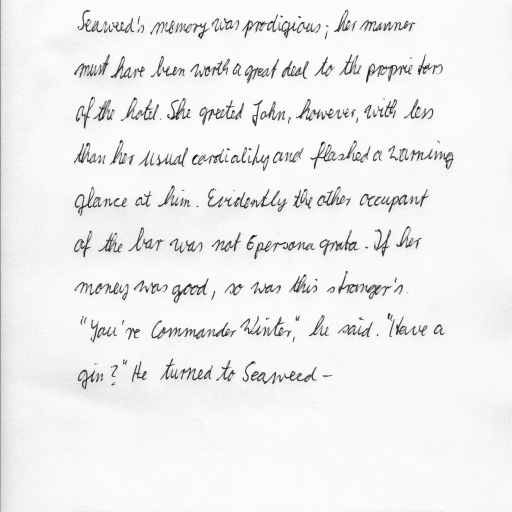 Seaweed's memory was prodigious; her manner
must have been worth a great deal to the proprietors
of the hotel. She greeted John, however, with less
than her usual cordiality and flashed a warning
glance at him. Evidently the other occupant
of the bar was not persona grata. If her
money was good, so was this stranger's.
"You're Commander Winter", he said. "Have a
gin?" He turned to Seaweed –